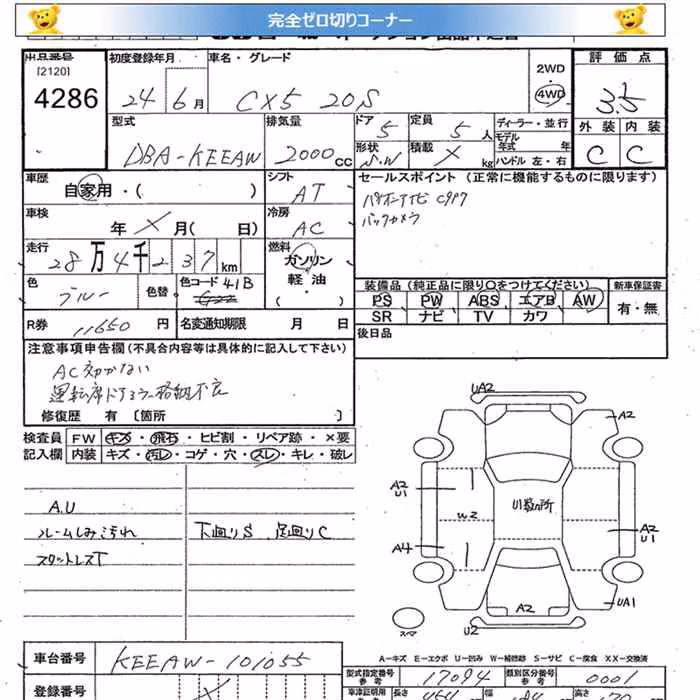 完全ゼロ切りコーナー
出品番号 初度登録年月 車名・グレード 2WD 評価点
[2120]
4286 24 6月 CX5 20S 4WD 3.5
型式 排気量 ドア 5 定員 5人 ディーラー・並行 外装 内装
DBA-KEEAW 2000cc 形状 S.W 積載 × kg モデル年式 年 C C
ハンドル 左・右
車歴 自家用・( ) シフト AT セールスポイント (正常に機能するものに限ります)
車検 年 × 月( 日) 冷房 AC C9P7
バックカメラ
走行 28万4千237km 燃料 ガソリン
軽油
( )
色 ブルー 色替 色コード 41B 装備品 (純正品に限り○をつけてください) 新車保証書
PS PW ABS エアB AW 有・無
SR ナビ TV カワ
R券 11650円 名変通知期限 月 日 後日品
注意事項申告欄 (不具合内容等は具体的に記入して下さい)
AC効かない
運転席ドアミラー格納不良
修復歴 有 〔箇所 〕
検査員 FW キズ・飛石・ヒビ割・リペア跡・×要
記入欄 内装 キズ・汚レ・コゲ・穴・スレ・キレ・破レ
A.U
ルームしみ汚れ 下廻りS 足廻りC
スタットレスT
UA2
A2
A2
U1
W2
A4
A2
U1
UA1
A2
U2
スマ
A-キズ E-エクボ U-凹み W-補修跡 S-サビ C-腐食 XX-交換済
車台番号 KEEAW-101055
型式指定番号 参考 17094 類別区分番号 参考 0001
登録番号 × 車庫証明用 長さ 幅 高さ